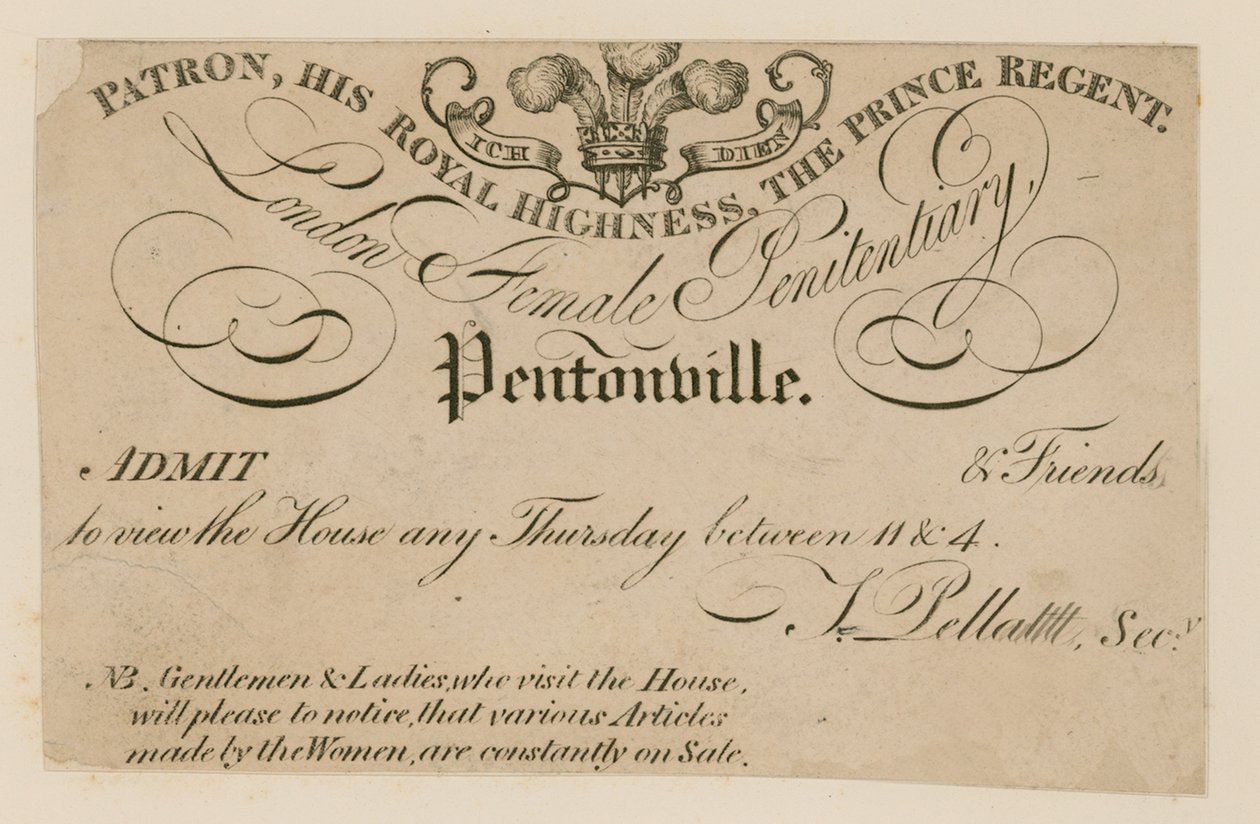 PATRON, HIS ROYAL HIGHNESS, THE PRINCE REGENT.
ICH DIEN
London Female Penitentiary,
Pentonville.
ADMIT & Friends
to view the House any Thursday between 11 & 4.
T. Pellatt, Sec.y
NB. Gentlemen & Ladies, who visit the House,
will please to notice, that various Articles
made by the Women, are constantly on Sale.